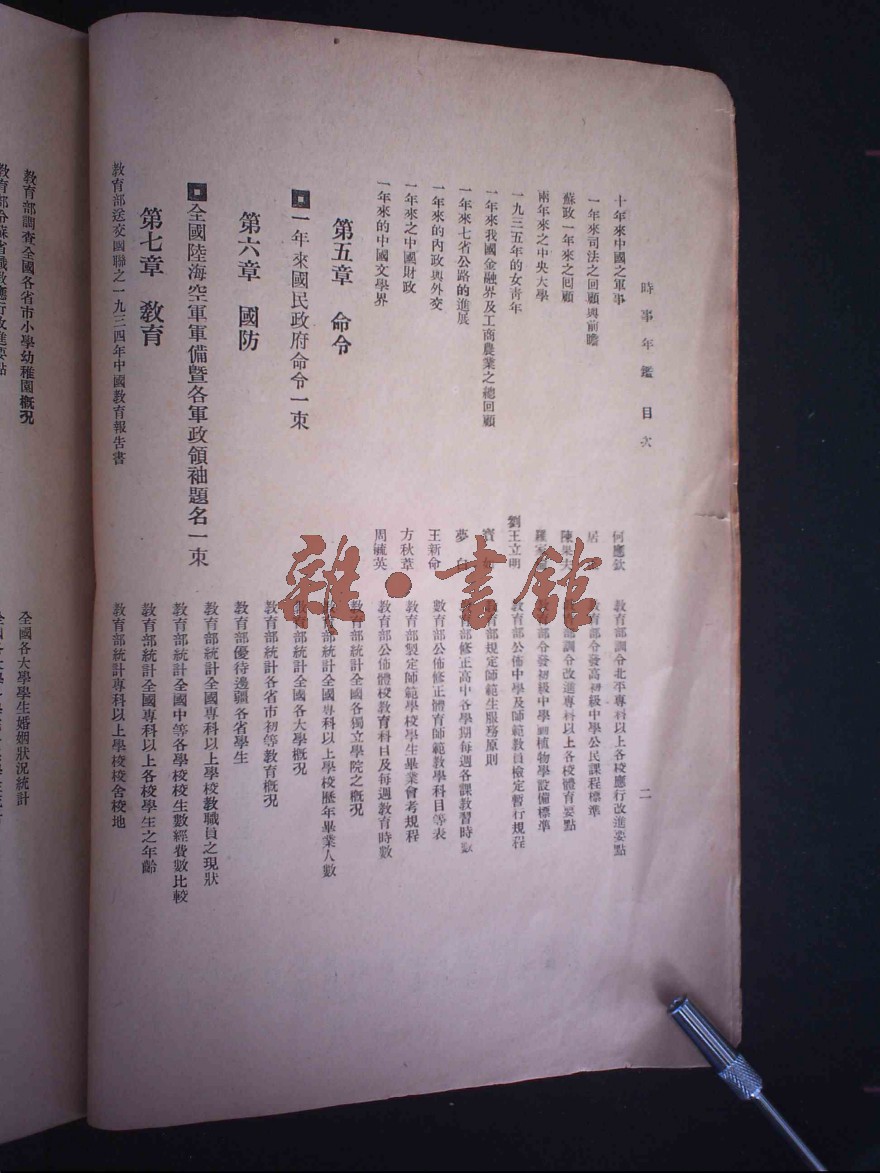 時事年鑑 目次 二
十年來中國之軍事 何應欽
一年來司法之回顧與前瞻 居
蘇政一年來之回顧 陳果夫
兩年來之中央大學 羅家
一九三五年的女青年 劉王立明
一年來我國金融界及工商農業之總回顧
一年來七省公路的進展 夢
一年來的內政與外交 王新命
一年來之中國財政 方秋葦
一年來的中國文學界 周毓英
第五章 命令
一年來國民政府命令一束
第六章 國防
全國陸海空軍軍備暨各軍政領袖題名一束
第七章 教育
教育部送交國聯之一九三四年中國教育報告書
教育部訓令北平專科以上各校應行改進要點
教育部令發高初級中學公民課程標準
教育部訓令改進專科以上各校體育要點
教育部令發初級中學植物學設備標準
教育部公佈中學及師範教員檢定暫行規程
教育部規定師範生服務原則
教育部修正高中各學期每週各課教習時數
教育部公佈修正體育師範教學科目等表
教育部製定師範學校學生畢業會考規程
教育部公佈體校教育科目及每週教育時數
教育部統計全國各獨立學院之概況
教育部統計全國專科以上學校歷年畢業人數
教育部統計全國各大學概況
教育部統計各省市初等教育概況
教育部優待邊疆各省學生
教育部統計全國專科以上學校教職員之現狀
教育部統計全國中等各學校校生數經費數比較
教育部統計全國專科以上各校學生之年齡
教育部統計專科以上學校校舍校地
教育部調查全國各省市小學幼稚園概況
全國各大學學生婚姻狀況統計
雜·書館